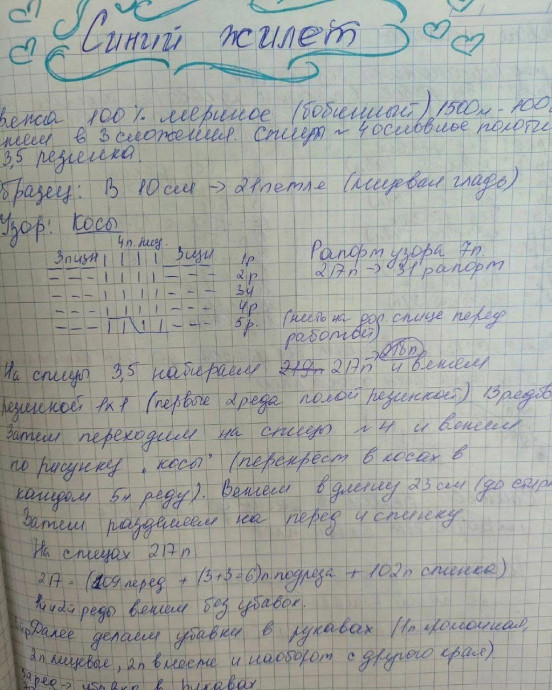 Синий жилет
100% меринос (бобинный) 1500м - 100
в 3 сложения. спицы № 4 основное полотно
3,5 резинка.
образец: В 10 см → 21 петле (лицевая гладь)
Узор: Косы
4п. лиц.
3п.изн 3изн 1р Рапорт узора 7п.
2р. 217п → 31 рапорт
3р
4р
5р. (нить на доп спице перед
работой)
На спицы 3,5 набираем 219п 217п → 218п и вяжем
резинкой 1х1 (первые 2 ряда полой резинкой) 13 рядов
Затем переходим на спицы №4 и вяжем
по рисунку "косы" (перекрест в косах в
каждом 5м ряду). Вяжем в длину 23 см (до
Затем разделяем на перед и спинку
На спицах 217п
217 = (109 перед + (3+3=6)п подреза + 102п спинка)
ряды вяжем без убавок.
Далее делаем убавки в рукавах (1п кромочная,
2п лицевые, 2п вместе и наоборот с другого края).
ряд → убавка в рукавах